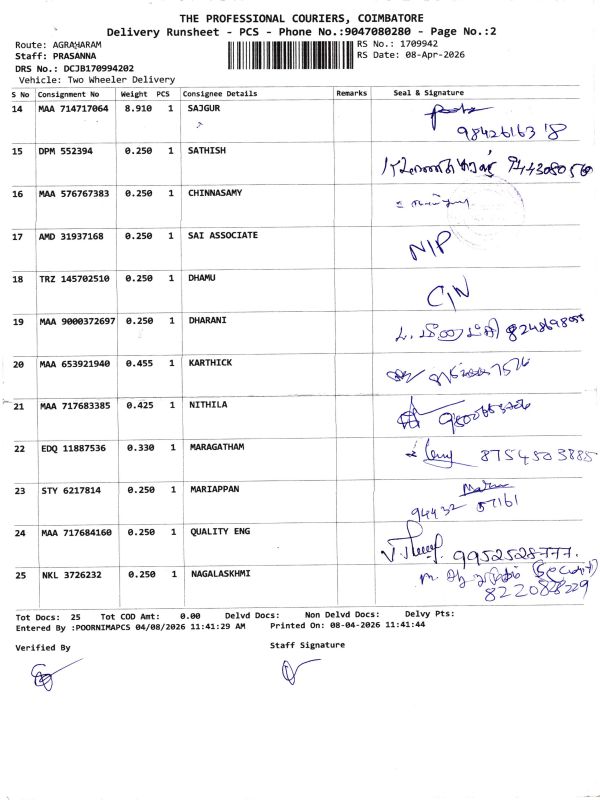 THE PROFESSIONAL COURIERS, COIMBATORE
Delivery Runsheet - PCS - Phone No.:9047080280 - Page No.:2
Route: AGRAHARAM RS No.: 1709942
Staff: PRASANNA RS Date: 08-Apr-2026
DRS No.: DCJB170994202
Vehicle: Two Wheeler Delivery
S No Consignment No Weight PCS Consignee Details Remarks Seal & Signature
14 MAA 714717064 8.910 1 SAJGUR
9842616318
15 DPM 552394 0.250 1 SATHISH
16 MAA 576767383 0.250 1 CHINNASAMY
17 AMD 31937168 0.250 1 SAI ASSOCIATE N/P
18 TRZ 145702510 0.250 1 DHAMU C/N
19 MAA 9000372697 0.250 1 DHARANI
20 MAA 653921940 0.455 1 KARTHICK
21 MAA 717683385 0.425 1 NITHILA
22 EDQ 11887536 0.330 1 MARAGATHAM 8754503885
23 STY 6217814 0.250 1 MARIAPPAN
94432 57161
24 MAA 717684160 0.250 1 QUALITY ENG
9952528777.
25 NKL 3726232 0.250 1 NAGALASKHMI
Tot Docs: 25 Tot COD Amt: 0.00 Delvd Docs: Non Delvd Docs: Delvy Pts:
Entered By :POORNIMAPCS 04/08/2026 11:41:29 AM Printed On: 08-04-2026 11:41:44
Verified By Staff Signature